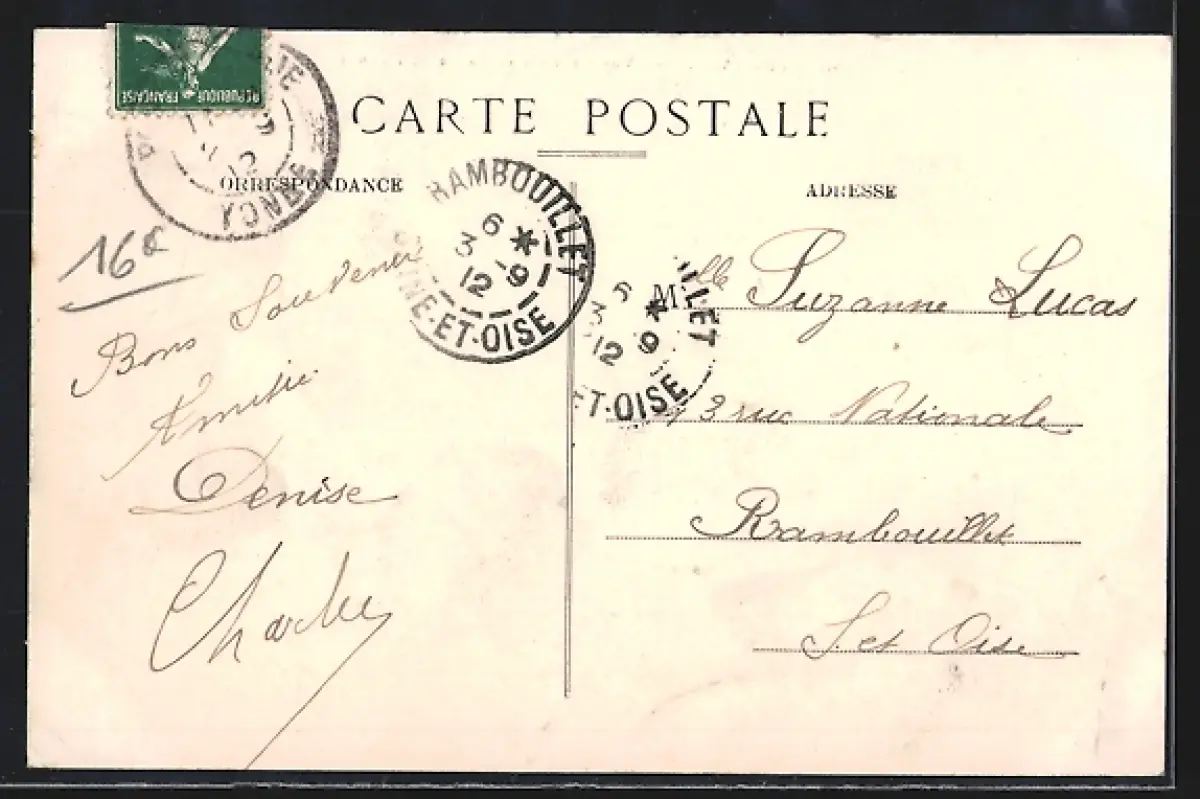 REPUBLIQUE FRANÇAISE
YONNE
12
CARTE POSTALE
ORRESPONDANCE
RAMBOUILLET
6 *
3 -9
12
NE-ET-OISE
LLET
6 *
3 9
12
ET-OISE
16
Bons Souvenirs
Amitié
Denise
Charles
ADRESSE
Mlle Suzanne Lucas
73 rue Nationale
Rambouillet
S. et Oise